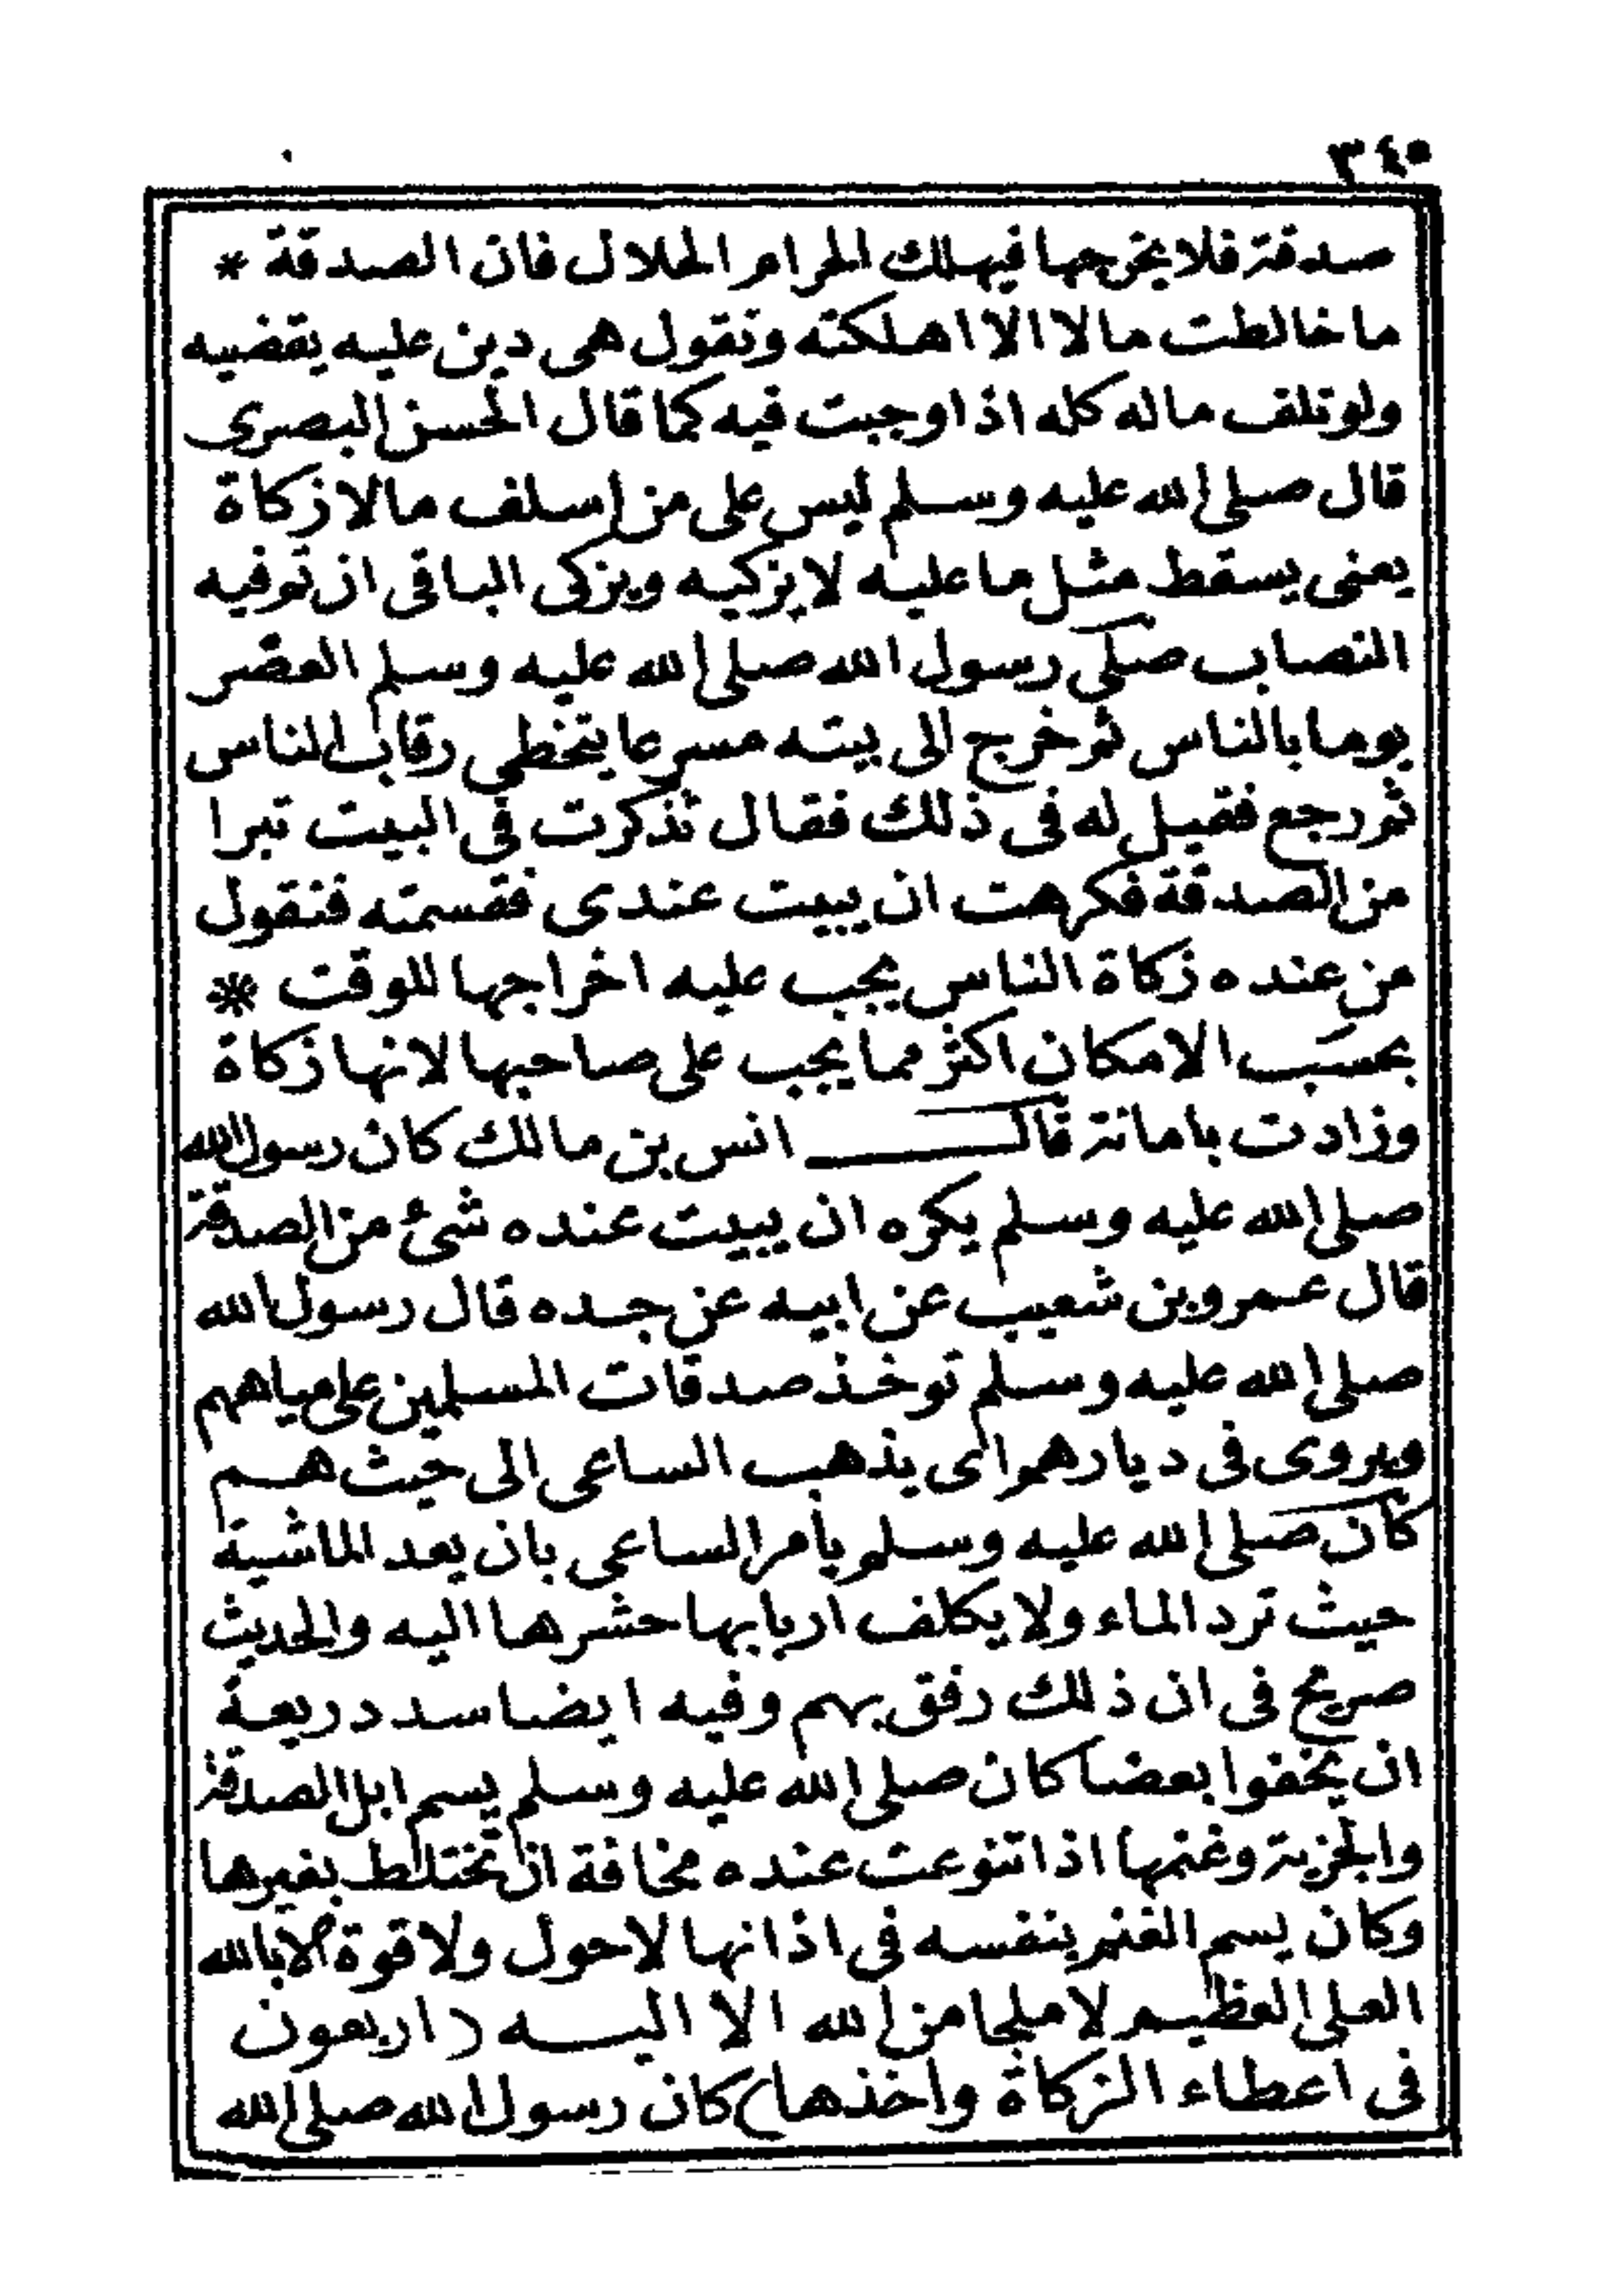 ٣٤٠
صدقة فلا يخرجها فيهلك الحرام الحلال فان الصدقة *
ما خالطت مالا الا اهلكته ونقول هى دين عليه يقضيه
ولو تلف ماله كله اذا وجبت فيه كما قال الحسن البصرى
قال صلى الله عليه وسلم ليس على من اسلف مالا زكاة
يعنى يسقط مثل ما عليه لا يزكيه ويزكى الباقى ان توفيه
النصاب صلى رسول الله صلى الله عليه وسلم العصر
يوما بالناس ثم خرج الى بيته مسرعا يتخطى رقاب الناس
ثم رجع فقيل له فى ذلك فقال تذكرت فى البيت تبرا
من الصدقة فكرهت ان يبيت عندى فقسمته فنقول
من عنده زكاة الناس يجب عليه اخراجها للوقت *
بحسب الامكان اكثر مما يجب على صاحبها لانها زكاة
وزادت بامانة قال انس بن مالك كان رسول الله
صلى الله عليه وسلم يكره ان يبيت عنده شئ من الصدقة
قال عمرو بن شعيب عن ابيه عن جده قال رسول الله
صلى الله عليه وسلم توخذ صدقات المسلمين على مياههم
ويروى فى ديارهم اى يذهب الساعى الى حيث هم
كان صلى الله عليه وسلم يأمر الساعى بان يعد الماشية
حيث ترد الماء ولا يكلف اربابها حشرها اليه والحديث
صريح فى ان ذلك رفق بهم وفيه ايضا سد دريعة
ان يخفوا بعضا كان صلى الله عليه وسلم يسم ابل الصدقة
والجزية وغنمها اذا تنوعت عنده مخافة ان تختلط بغيرها
وكان يسم الغنم بنفسه فى اذانها لا حول ولا قوة الا بالله
العلى العظيم لا ملجا من الله الا اليه (اربعون
فى اعطاء الزكاة واخذها) كان رسول الله صلى الله